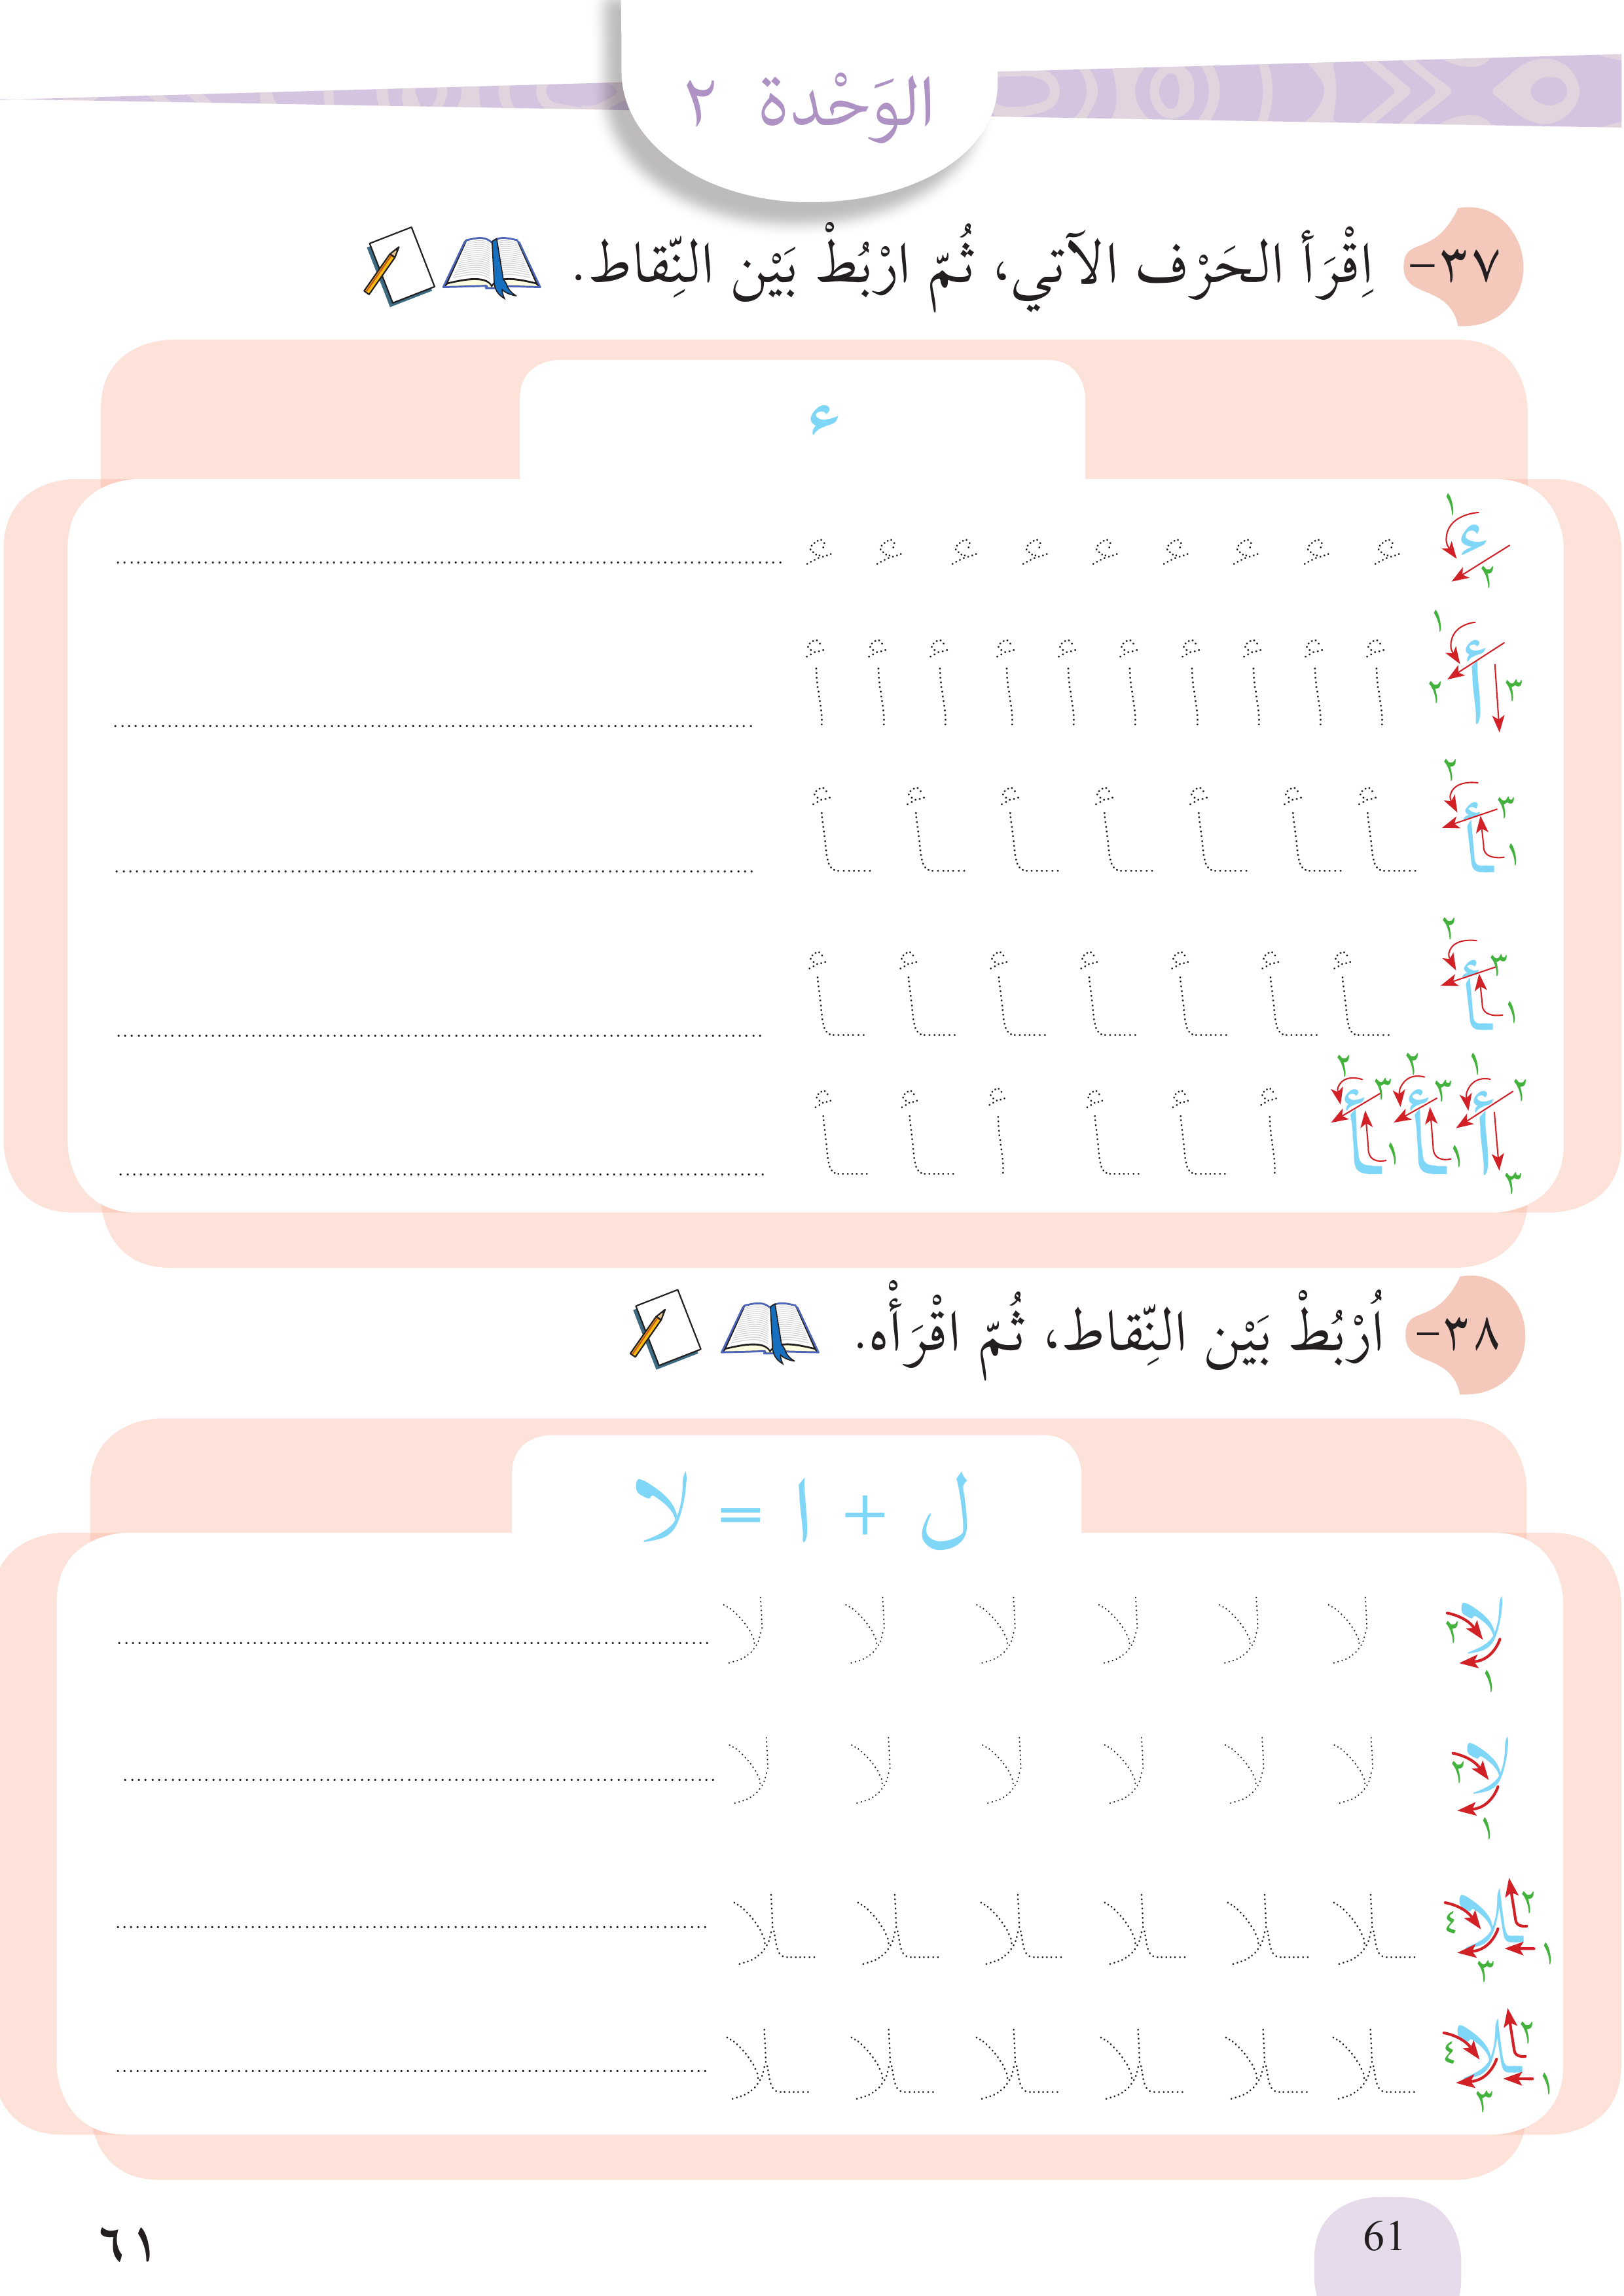 الوَحْدة ٢
٣٧- اِقْرَأ الحَرْف الآتي، ثُمّ ارْبُطْ بَيْن النِّقاط.
ء
١ ء ٢ ء ء ء ء ء ء ء ء ء
١ أ ٢ ٣ أ أ أ أ أ أ أ أ أ أ
٢ ـأ ٣ ١ ـأ ـأ ـأ ـأ ـأ ـأ ـأ
٢ ـأ ٣ ١ ـأ ـأ ـأ ـأ ـأ ـأ ـأ
١ ٢ أ ٣ ٢ ٣ ـأ ١ ٢ ٣ ـأ ١ أ ـأ ـأ أ ـأ ـأ
٣٨- اُرْبُطْ بَيْن النِّقاط، ثُمّ اقْرَأْه.
ل + ا = لا
لا ٢ ١ لا لا لا لا لا لا
لا ٢ ١ لا لا لا لا لا لا
٢ ـلا ٤ ١ ٣ ـلا ـلا ـلا ـلا ـلا ـلا
٢ ـلا ٤ ١ ٣ ـلا ـلا ـلا ـلا ـلا ـلا
61
٦١